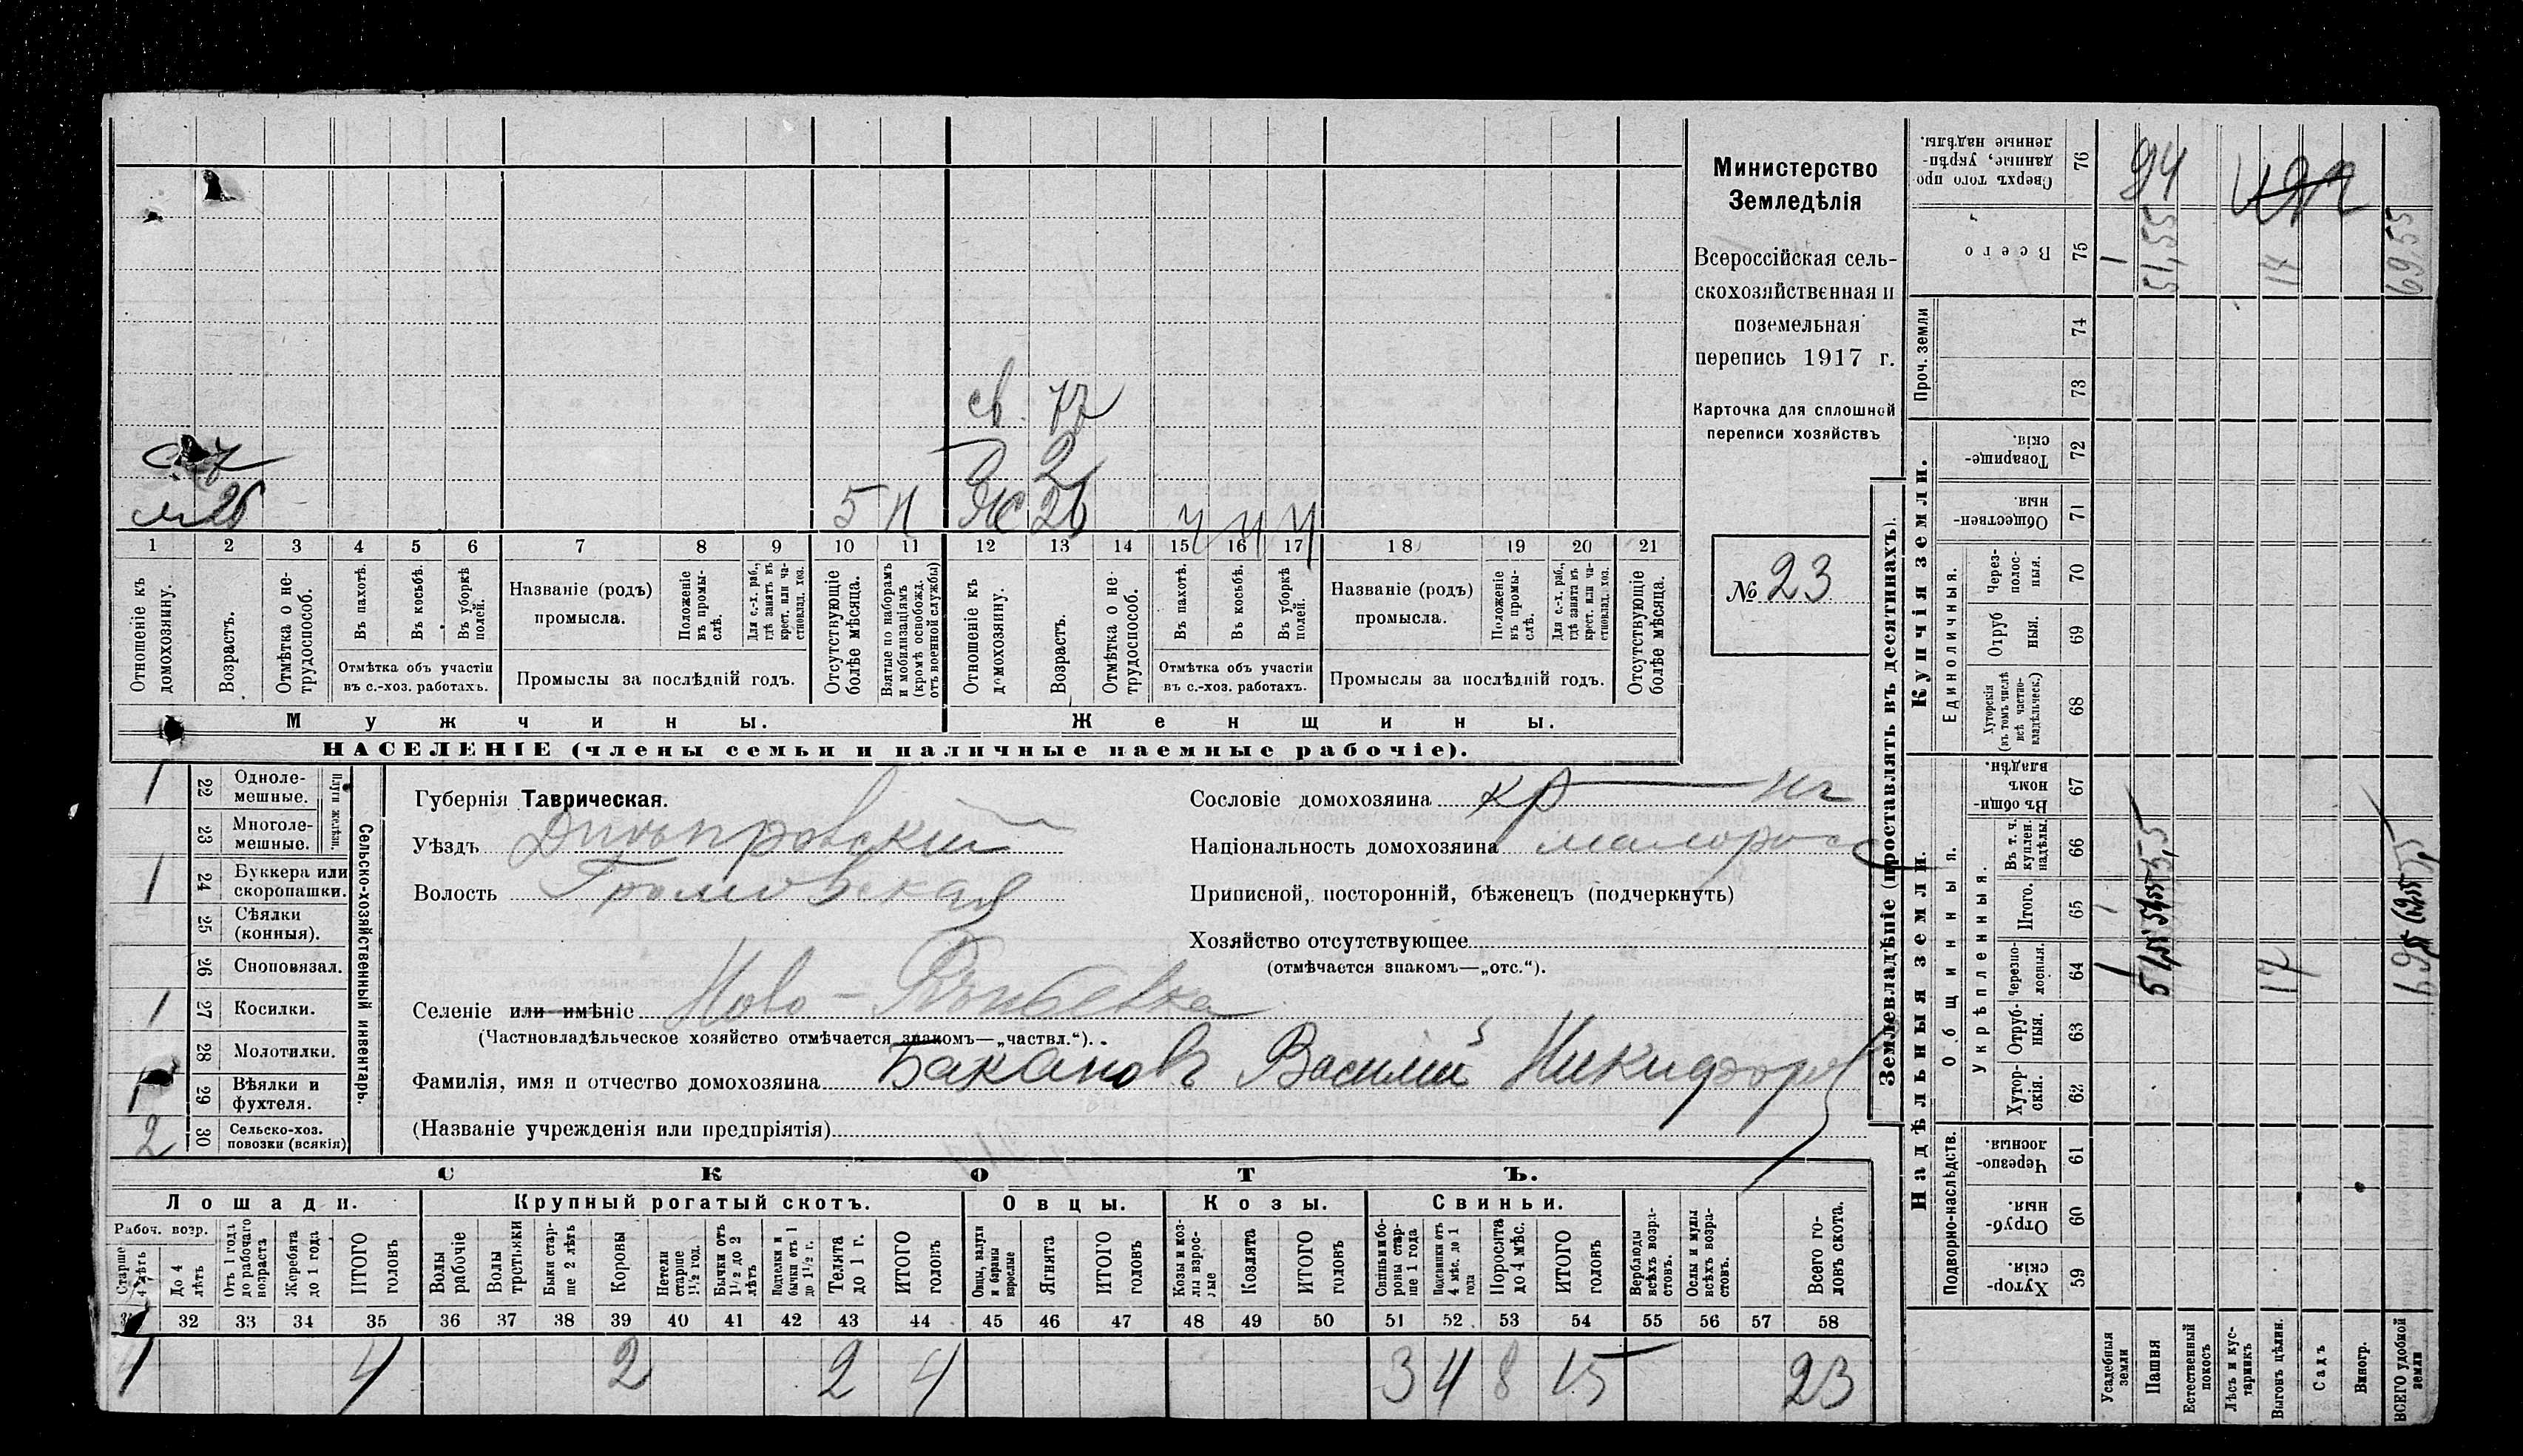 Министерство
Земледѣлія
Всероссійская сель-
скохозяйственная и
поземельная
перепись 1917 г.
Карточка для сплошной
переписи хозяйствъ
№ 23
св. 77
с. 7
2
м 26 5 н Ж 26 ч ч ч
1 2 3 4 5 6 7 8 9 10 11 12 13 14 15 16 17 18 19 20 21
Отношеніе къ домохозяину.
Возрастъ.
Отмѣтка о не-трудоспособ.
Въ пахотѣ.
Въ косьбѣ.
Въ уборкѣ полей.
Отмѣтка объ участіи
въ с.-хоз. работахъ.
Названіе (родъ)
промысла.
Положеніе въ промы-слѣ.
Для с.-х. раб., гдѣ занятъ въ крест. или ча-стновлад. хоз.
Промыслы за послѣдній годъ.
Отсутствующіе болѣе мѣсяца.
Взятые по наборамъ и мобилизаціямъ (кромѣ освобожд. отъ военной службы)
Отношеніе къ домохозяину.
Возрастъ.
Отмѣтка о не-трудоспособ.
Въ пахотѣ.
Въ косьбѣ.
Въ уборкѣ полей.
Отмѣтка объ участіи
въ с.-хоз. работахъ.
Названіе (родъ)
промысла.
Положеніе въ промы-слѣ.
Для с.-х. раб., гдѣ занята въ крест. или ча-стновлад. хоз.
Промыслы за послѣдній годъ.
Отсутствующіе болѣе мѣсяца.
Мужчины.
Женщины.
НАСЕЛЕНІЕ (члены семьи и наличные наемные рабочіе).
1 22 Одноле-мешные.
23 Многоле-мешные.
Плуги желѣзн.
1 24 Буккера или скоропашки.
25 Сѣялки (конныя).
26 Сноповязал.
1 27 Косилки.
28 Молотилки.
1 29 Вѣялки и фухтеля.
2 30 Сельско-хоз. повозки (всякія)
Сельско-хозяйственный инвентарь.
Губернія Таврическая.
Уѣздъ Днѣпровский
Волость Громовская
Селеніе или имѣніе Ново-
(Частновладѣльческое хозяйство отмѣчается знакомъ—„частвл.“).
Фамилія, имя и отчество домохозяина Бакановъ Василий Никифоров
(Названіе учрежденія или предпріятія)
Сословіе домохозяина кр-нъ
Національность домохозяина малорос
Приписной, посторонній, бѣженецъ (подчеркнуть)
Хозяйство отсутствующее
(отмѣчается знакомъ—„отс.“).
СКОТЪ.
Лошади.
Крупный рогатый скотъ.
Овцы.
Козы.
Свиньи.
Рабоч. возр.
Старше 4 лѣтъ
До 4 лѣтъ
Отъ 1 года до рабочаго возраста
Жеребята до 1 года
ИТОГО головъ
Волы рабочіе
Волы третьяки
Быки стар-ше 2 лѣтъ
Коровы
Нетели старше 1½ год.
Бычки отъ 1½ до 2 лѣтъ
Подтелки и бычки отъ 1 до 1½ г.
Телята до 1 г.
ИТОГО головъ
Овцы, валухи и бараны взрослые
Ягнята
ИТОГО головъ
Козы и коз-лы взрос-лые
Козлята
ИТОГО головъ
Свиньи и бо-ровы стар-ше 1 года
Подсвинки отъ 4 мѣс. до 1 года
Поросята до 4 мѣс.
ИТОГО головъ
Верблюды всѣхъ возра-стовъ.
Ослы и мулы всѣхъ возра-стовъ.
Всего го-ловъ скота.
31 32 33 34 35 36 37 38 39 40 41 42 43 44 45 46 47 48 49 50 51 52 53 54 55 56 57 58
4 4 2 2 4 3 4 8 15 23
Землевладѣніе (проставлять въ десятинахъ).
Надѣльныя земли.
Купчія земли.
Проч. земли
Подворно-наслѣдств.
Общинныя.
Укрѣпленныя.
Единоличныя.
Сверхъ того про-данные, укрѣп-ленные надѣлы. 76 94
Всего 75 1 51,55 17 69,55
74
73
Товарище-скія. 72
Обществен-ныя. 71
Через-полос-ныя. 70
Отруб-ныя. 69
Хуторскія (въ томъ числѣ всѣ частно-владѣльческ.) 68
Въ общин-номъ владѣн. 67
Въ т. ч. куплен. надѣлы. 66
Итого. 65
Черезпо-лосныя. 64 1 17
Отруб-ныя. 63
Хутор-скія. 62
Черезпо-лосныя. 61
Отруб-ныя. 60
Хутор-скія. 59
Усадебныя земли
Пашня
Естественный покосъ
Лѣсъ и кус-тарникъ
Выгонъ цѣлин.
Садъ
Виногр.
ВСЕГО удобной земли